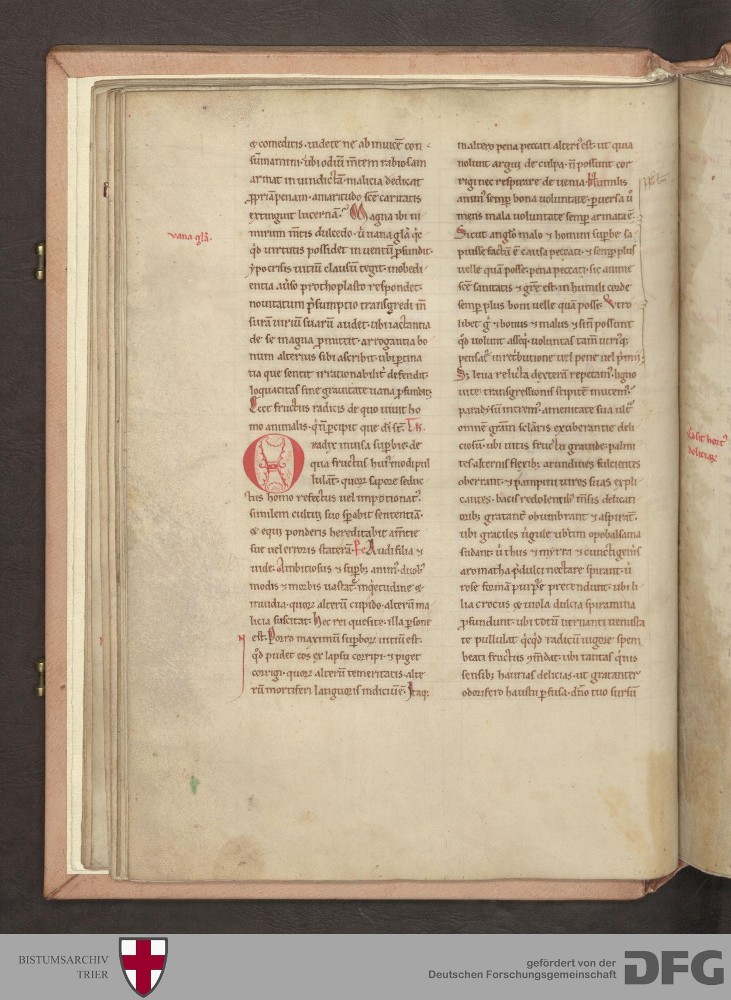 & comeditis. uidete ne ab inuicē con
sūmamini. ubi odiū mītem rabiosam
armat in uindictā. malicia dedicat
ꝓpriā penam. amaritudo scē caritatis
extinguit lucernā. Magna ibi ni
mirum mītis dulcedo. vana glā
vana glā.
qd uirtutis possidet in uentū ꝓfundit.
ypocrisis uitiū clausū tegit. inobedi
entia auso prothoplasto respondet.
nouitatum p̄sumptio transgredi
surā uiriū suarū audet. ubi iactantia
de se magna ꝓmittit. arrogantia bo
num alterius sibi ascribit. ubi ꝑtina
tia que sentit irrationabilit defendit.
loquacitas sine grauitate uana ꝓfundit.
Ecce fructus radicis de quo uiuit ho
mo animalis. percipit que dī sē.
O radix inuisa suꝑbie. de
qua fructus hui modi pul
lulāt. quorū sapore seduc
tus homo refectus uel impotionat
similem cultui suo sententiā.
& equi ponderis hereditabit
sue uel erroris staterā. Audi filia &
uide. Ambitiosus & suꝑbꝰ animꝰ duobꝰ
modis & morbis uastat. inquietudine &
inuidia. quorū alterū cupido. alterū ma
licia suscitat. Hec rei quesite. illa ꝑsone
est. Porro maximū suꝑborū uitiū est.
qd pudet eos ex lapsu corripi. & piget
corrigi. quorū alterū temeritatis. alte
rū mortiferi languoris indiciū ē. Itaq;
in altero pena peccati alteriꝰ est. ut quia
nolunt argui de culpa. ñ possunt cor
rigi nec respirare de uenia. Humilis
animꝰ semꝑ bona uoluntate. ꝑuersa ū
mens mala uoluntate semꝑ armata ē.
Sicut anglo malo & homini suꝑbe sa
puisse factū ē causa peccati. & semꝑ plus
uelle quā posse. pena peccati. sic
scē sanitatis & grē est. in humili corde
semꝑ plus boni uelle quā posse. Utro
libet & bonus & malus & si ñ possunt
qd uolunt asseq. uoluntas tam utriꝰq;
pensat in retributione uel pene uel p̄mii.
Sz leua relicta dexterā repetam. ligno
uite transgressionis stipitē mutem.
paradysū intrem. amenitate sua ult
omnē grām sclāris exuberantie deli
ciosū. ubi uitis fructu grande. palmi
tes alternis flexibꝰ arundines fulcientes
oberrant & pampini uires suas expli
cantes. bacis redolentibꝰ mīsis delicati
oribꝰ gratant obumbrant & aspirāt.
ubi graciles uirgule ubtim opobalsama
sudant. ū thus & myrra & cuncti genis
aromatha dulci nectare spirant. ū
rose formā purpure pretendunt. ubi li
lia crocus & uiola dulcia spiramina
ꝓfundunt. ubi totū uernanti uenusta
te pullulat qcqd radicū uigore spem
beati fructus. ubi tantas
sensibꝰ haurias delicias. ut gratanter
odorifero haustu ꝑfusa. dno tuo sursū
deliciarꝝ
BISTUMSARCHIV
TRIER
gefördert von der
Deutschen Forschungsgemeinschaft
DFG